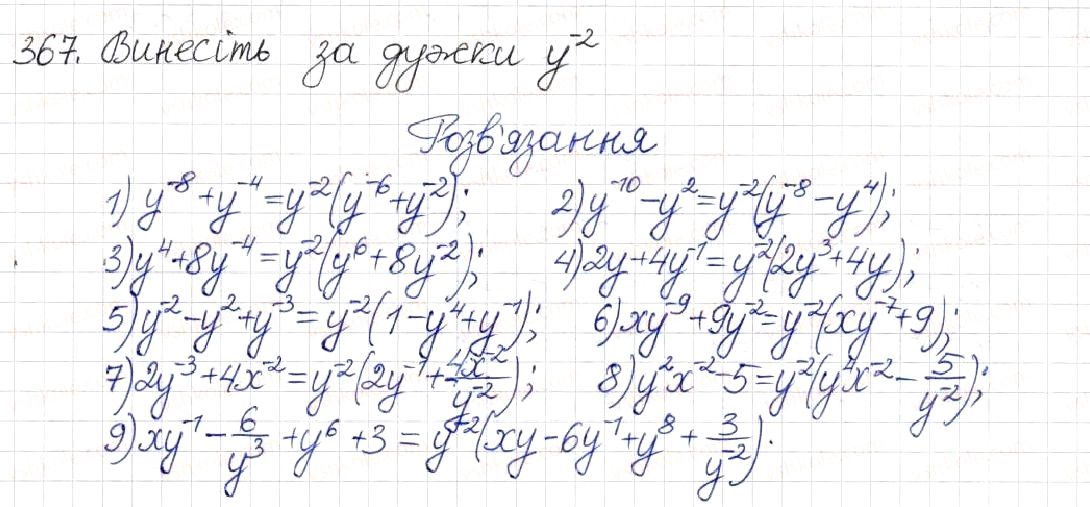 367. Винесіть за дужки y⁻²
Розв'язання
1) y⁻⁸ + y⁻⁴ = y⁻²(y⁻⁶ + y⁻²); 2) y⁻¹⁰ − y² = y⁻²(y⁻⁸ − y⁴);
3) y⁴ + 8y⁻⁴ = y⁻²(y⁶ + 8y⁻²); 4) 2y + 4y⁻¹ = y⁻²(2y³ + 4y);
5) y⁻² − y² + y⁻³ = y⁻²(1 − y⁴ + y⁻¹); 6) xy⁻⁹ + 9y⁻² = y⁻²(xy⁻⁷ + 9);
7) 2y⁻³ + 4x⁻² = y⁻²(2y⁻¹ + 4x⁻²/y⁻²); 8) y²x⁻² − 5 = y⁻²(y⁴x⁻² − 5/y⁻²);
9) xy⁻¹ − 6/y³ + y⁶ + 3 = y⁻²(xy − 6y⁻¹ + y⁸ + 3/y⁻²).